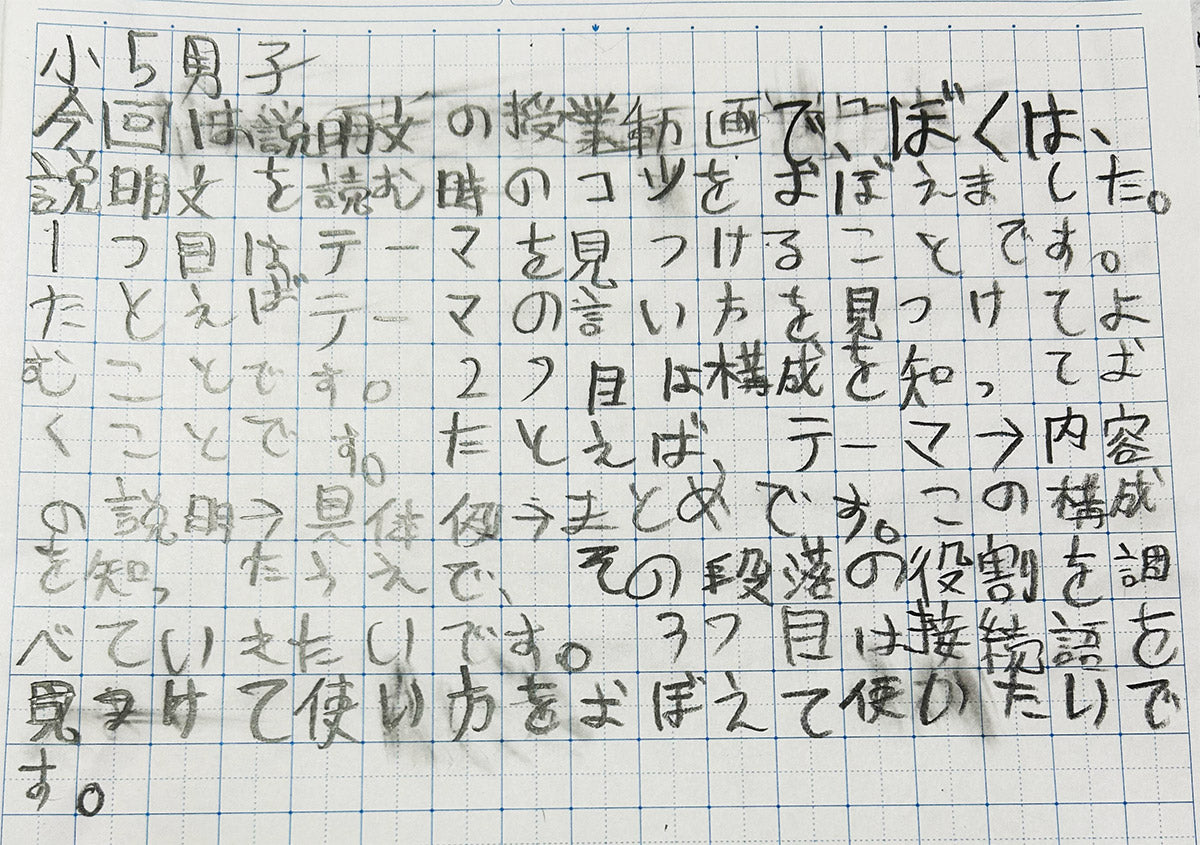 小5男子
今回は説明文の授業動画で、ぼくは、
説明文を読む時のコツをおぼえました。
1つ目はテーマを見つけることです。
たとえばテーマの言い方を見つけてよ
むことです。2つ目は構成を知ってお
くことです。たとえば、テーマ→内容
の説明→具体例→まとめです。この構成
を知ったうえで、その段落の役割を調
べていきたいです。3つ目は接続語を
見つけて使い方をおぼえて使いたいで
す。